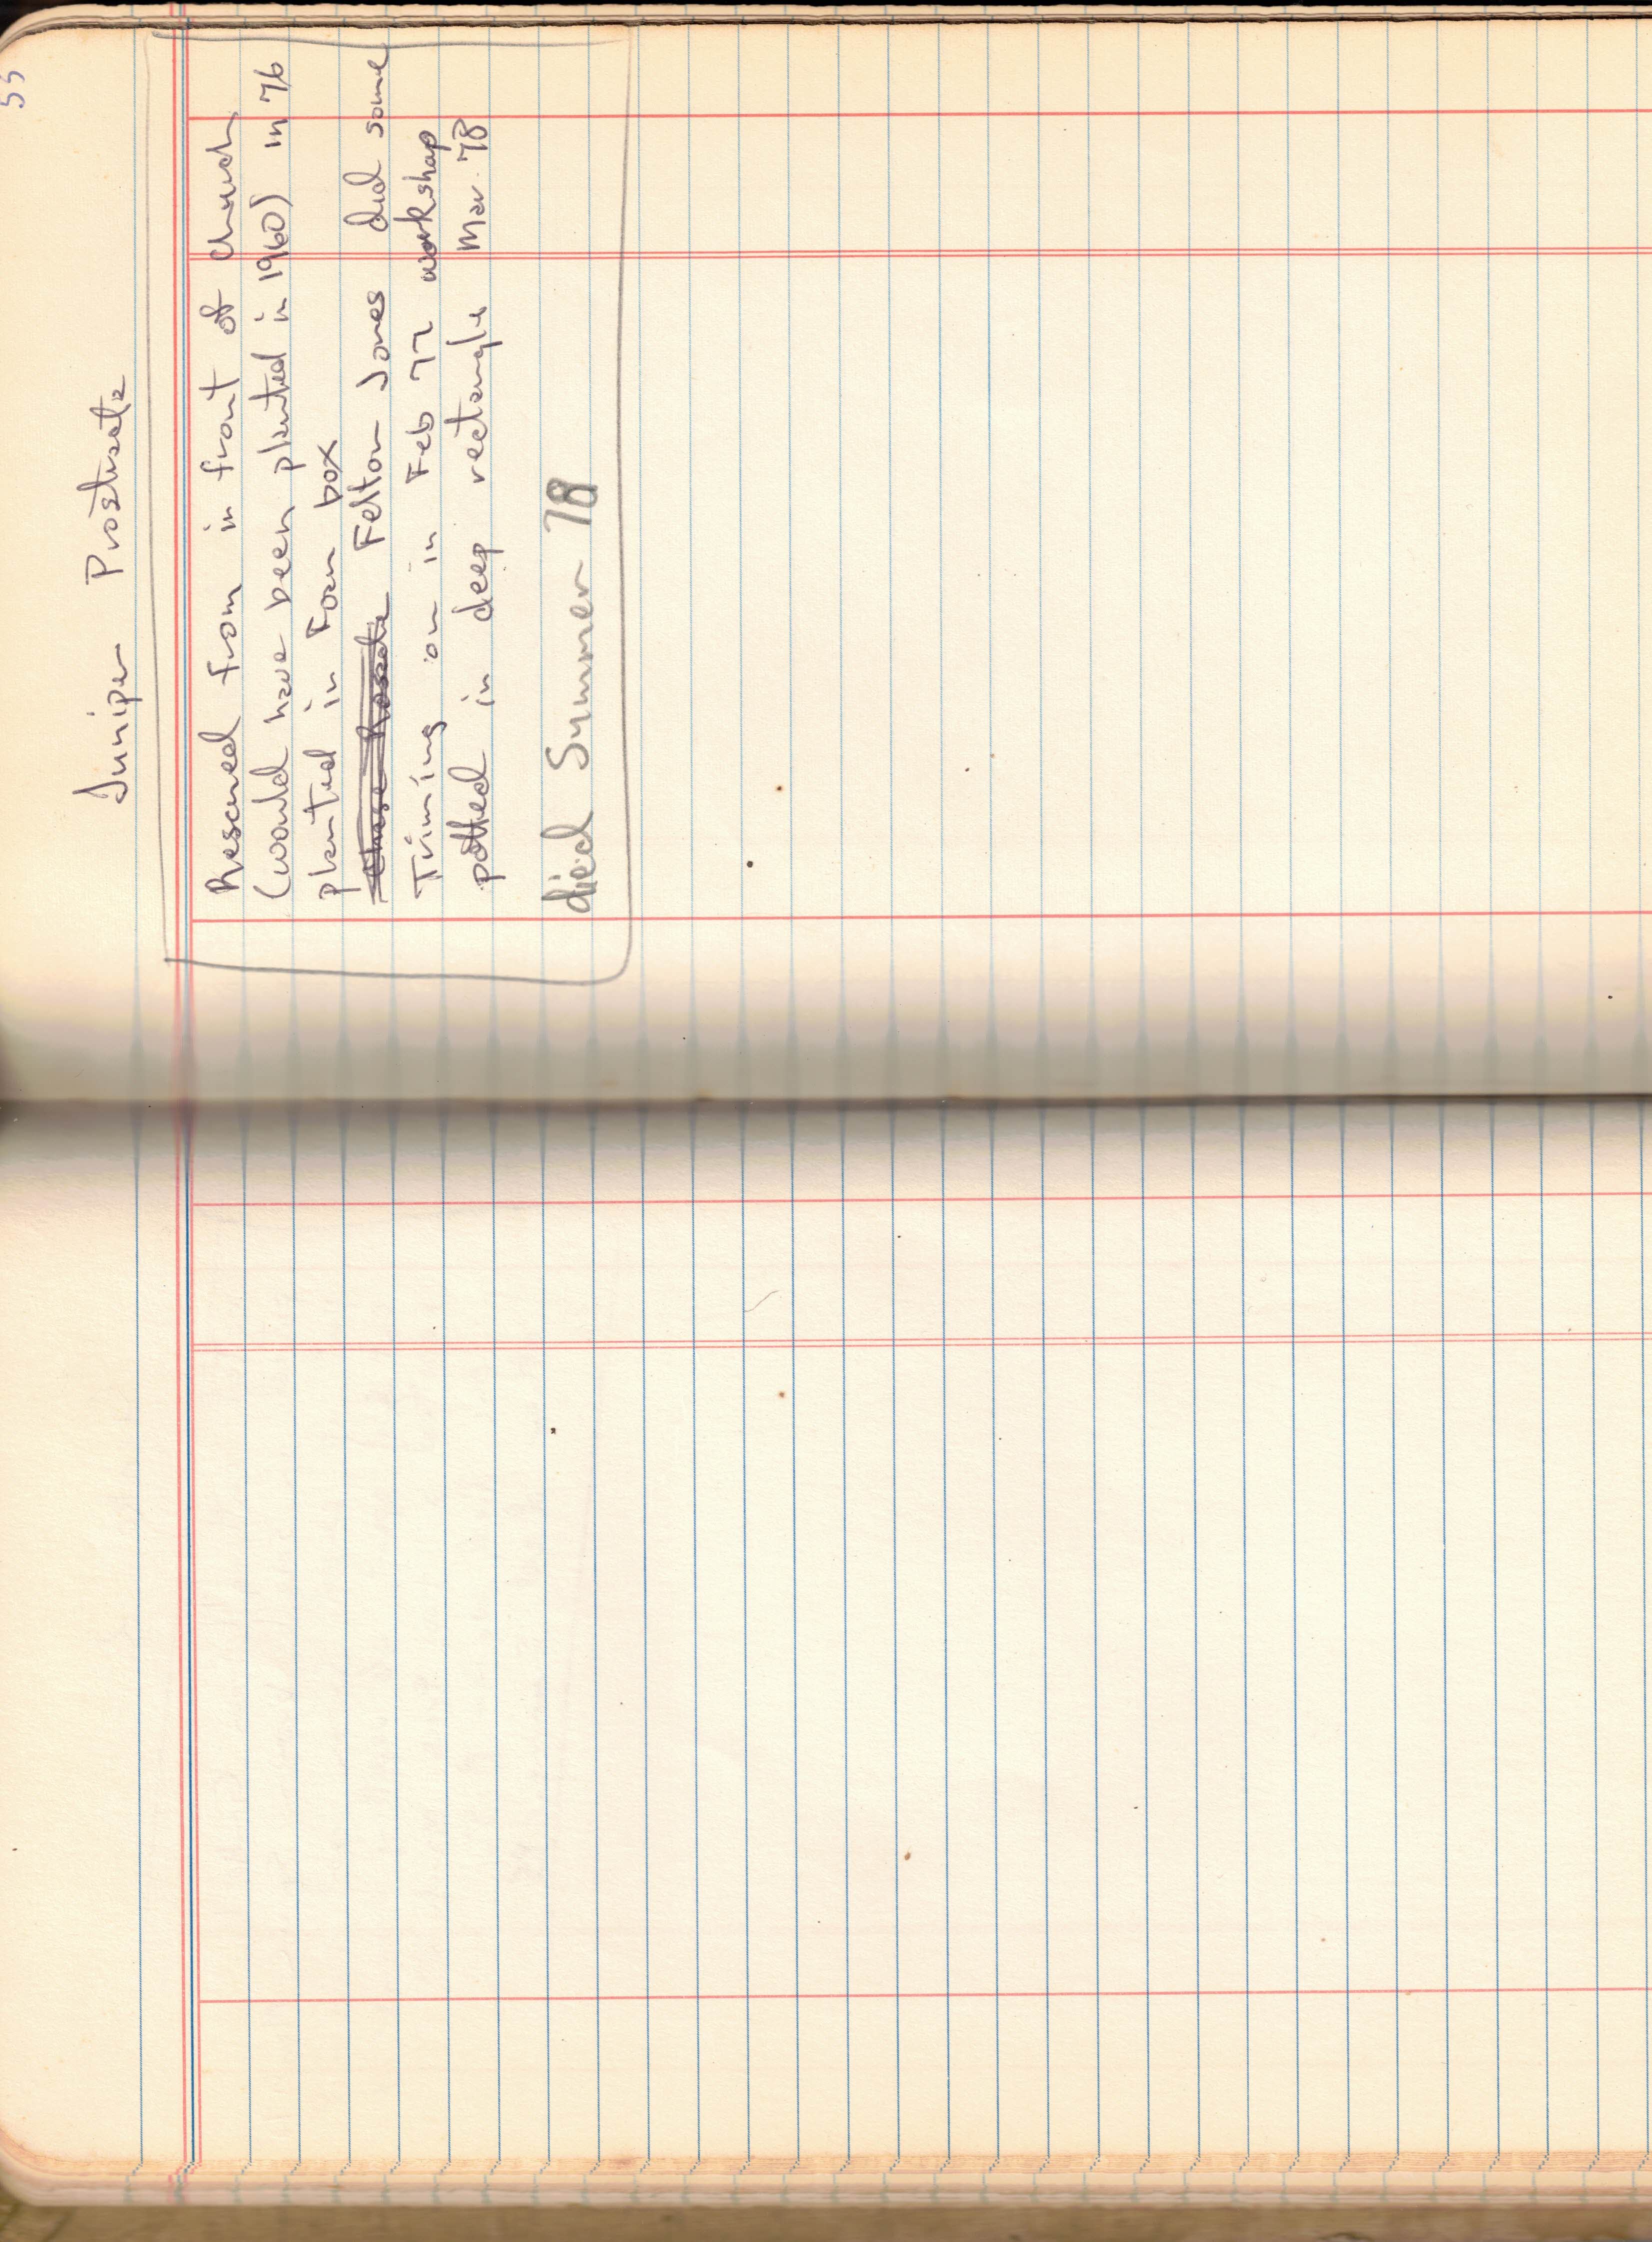 55
Juniper Prostrata
Rescued from in front of Church
(would have been planted in 1960) in 76
planted in Foam box
Felton Jones did some
Triming on in Feb 77 workshop
potted in deep rectangle Mar 78
died Summer 78